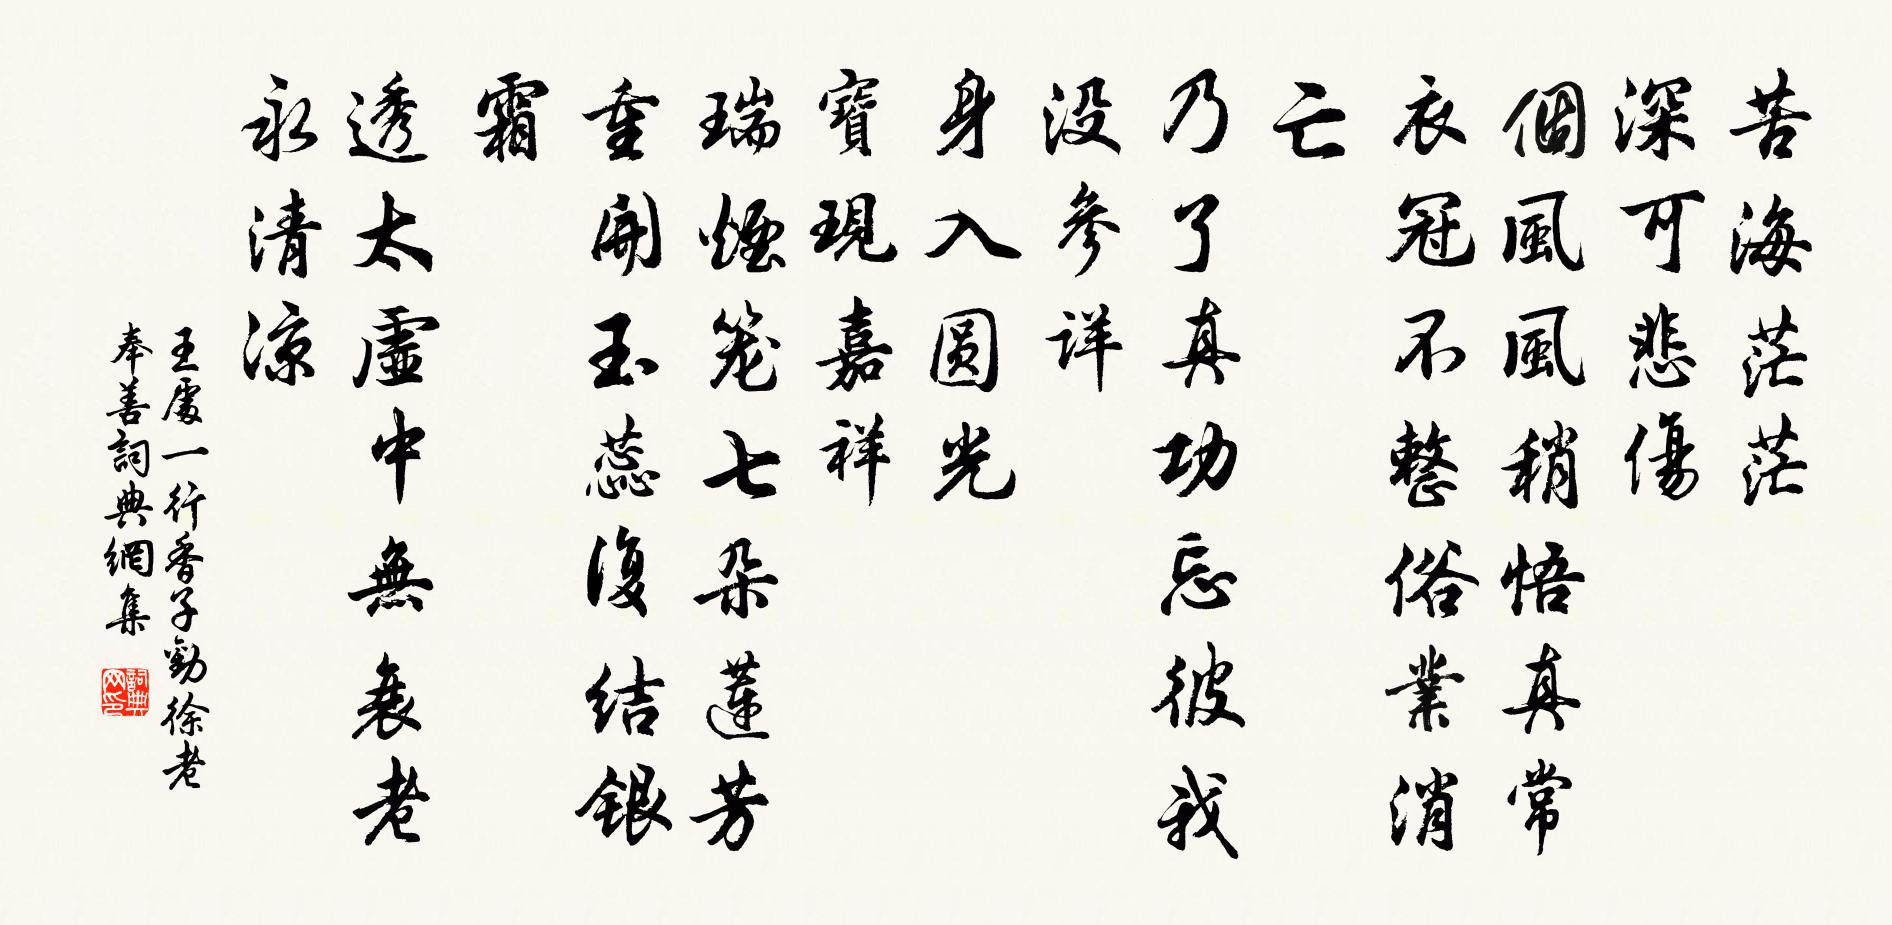 苦海茫茫
深可悲傷
個風風稍悟真常
衣冠不整俗業消
亡
乃了真功忘彼我
没參詳
身入圆光
寶現嘉祥
瑞煙笼七朵蓮芳
重開玉蕊復结銀
霜
透太虛中無衰老
永清凉
王處一行香子勸徐老
奉善詞典網集
詞典网印